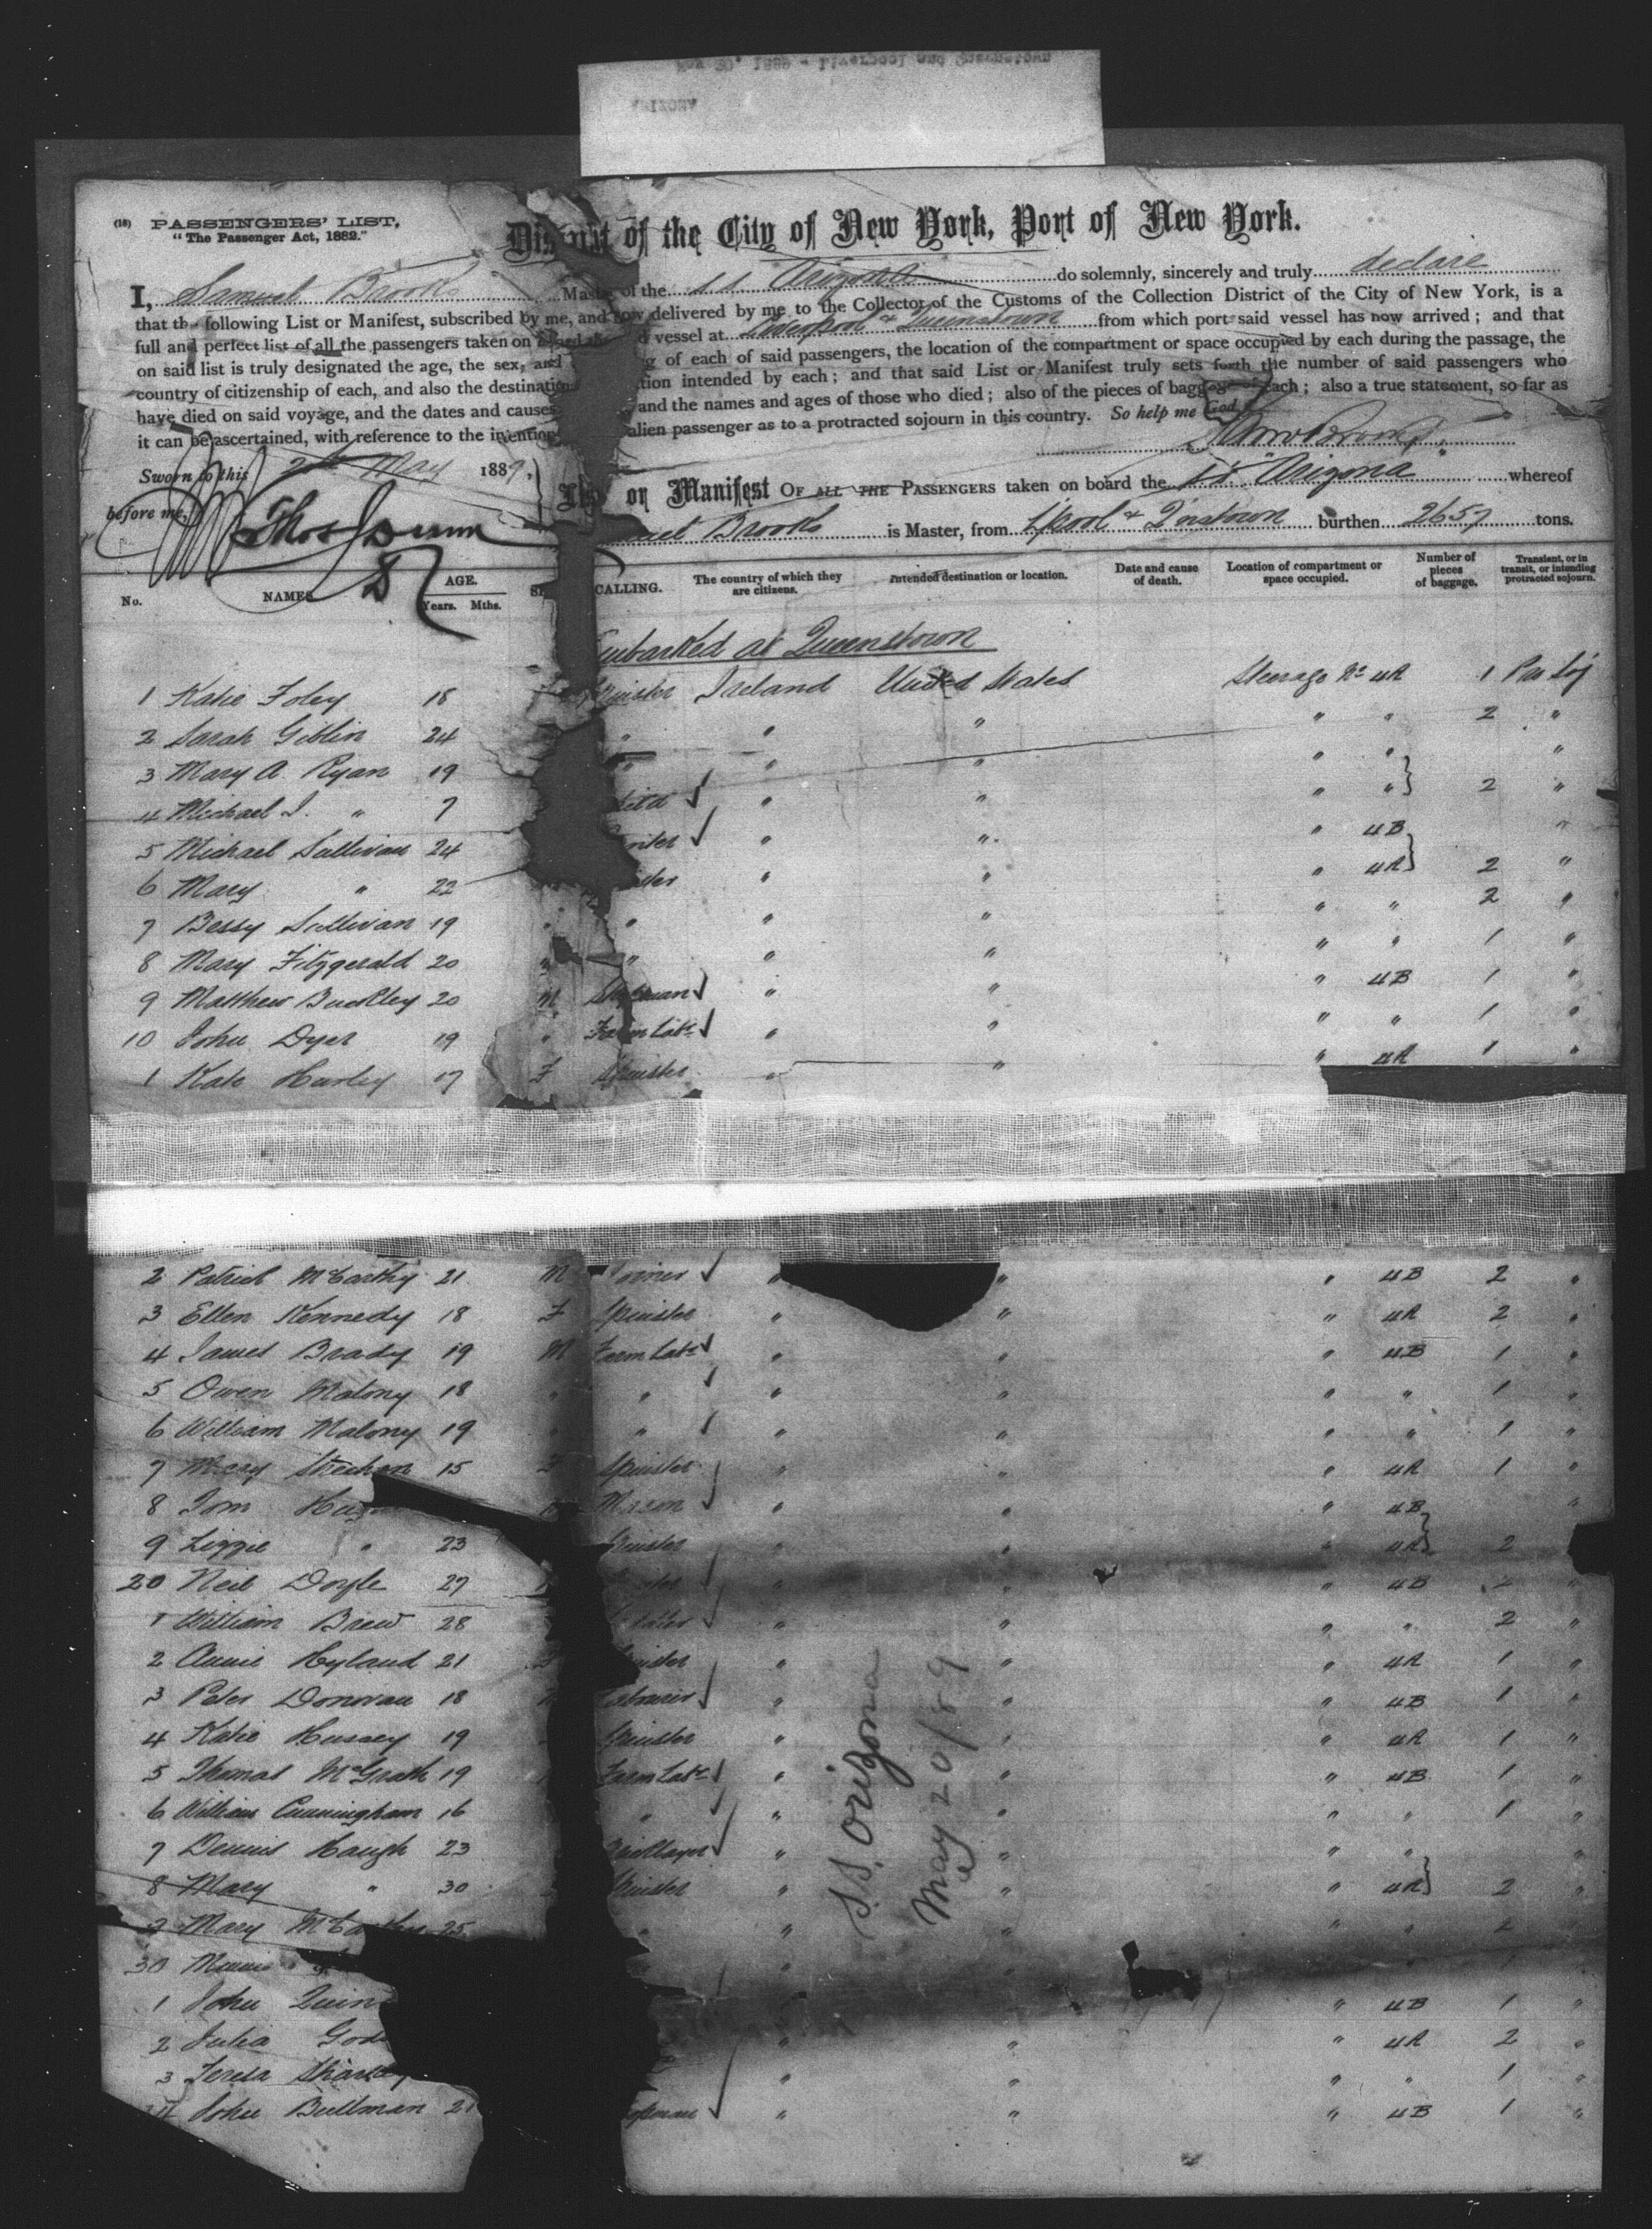 (18) PASSENGERS' LIST,
"The Passenger Act, 1882."
District of the City of New York, Port of New York.
I, Samuel Brooks Master of the S.S. Arizona do solemnly, sincerely and truly declare
that the following List or Manifest, subscribed by me, and now delivered by me to the Collector of the Customs of the Collection District of the City of New York, is a
full and perfect list of all the passengers taken on board the vessel at Liverpool & Queenstown from which port said vessel has now arrived; and that
on said list is truly designated the age, the sex, and g of each of said passengers, the location of the compartment or space occupied by each during the passage, the
country of citizenship of each, and also the destination tion intended by each; and that said List or Manifest truly sets forth the number of said passengers who
have died on said voyage, and the dates and causes and the names and ages of those who died; also of the pieces of baggage of each; also a true statement, so far as
it can be ascertained, with reference to the intention alien passenger as to a protracted sojourn in this country. So help me God.
Saml Brooks
Sworn to this 20th May 1889,
before me, Thos Dunn
List or Manifest OF ALL THE PASSENGERS taken on board the S.S. "Arizona" whereof
uel Brooks is Master, from L'pool & Q'nstown burthen 2657 tons.
No. NAMES AGE. Years. Mths. CALLING. The country of which they are citizens. Intended destination or location. Date and cause of death. Location of compartment or space occupied. Number of pieces of baggage. Transient, or in transit, or intending protracted sojourn.
Embarked at Queenstown
1 Katie Foley 18 Spinster Ireland United States Steerage No 4R 1 Pro Soj
2 Sarah Giblin 24 " " " " " 2 "
3 Mary A. Ryan 19 " " " " " "
4 Michael J. " 7 " " " " 2 "
5 Michael Sullivan 24 " " " 4B "
6 Mary " 22 " " " 4R 2 "
7 Bessy Sullivan 19 " " " " " " 2 "
8 Mary Fitzgerald 20 " " " " " " 1 "
9 Matthew Buckley 20 M " " " 4B 1 "
10 John Dyer 19 " Farm Labr " " " " 1 "
1 Kate Hurley 17 F Spinster " " " 4R 1 "
2 Patrick McCarthy 21 M " " " 4B 2 "
3 Ellen Kennedy 18 F Spinster " " " 4R 2 "
4 James Brady 19 M Farm Labr " " " 4B 1 "
5 Owen Malony 18 " " " " " " 1 "
6 William Malony 19 " " " " " " 1 "
7 Mary 15 F Spinster " " " 4R 1 "
8 Tom Mason " " " 4B "
9 Lizzie " 23 Spinster " " " 4R 2
20 Neil Doyle 27 " " " 4B "
1 William Brew 28 " " " " 2 "
2 Annie Hyland 21 F Spinster " " " 4R 1 "
3 Peter Donovan 18 Labourer " " " 4B 1 "
4 Katie Hussey 19 Spinster " " " 4R 1 "
5 Thomas McGrath 19 Farm Labr " " " 4B 1 "
6 William Cunningham 16 " " " " " 1 "
7 Dennis Haugh 23 Bricklayer " " " " "
8 Mary " 30 Spinster " " " 4R 2 "
9 Mary McCarthy 25 " " " " "
30 Minnie
1 John Quin " 4B 1 "
2 Julia " " " 4R 2 "
3 Teresa " " " " 1 "
4 John Bullman 21 " " " 4B 1 "
S.S. Arizona
May 20/89